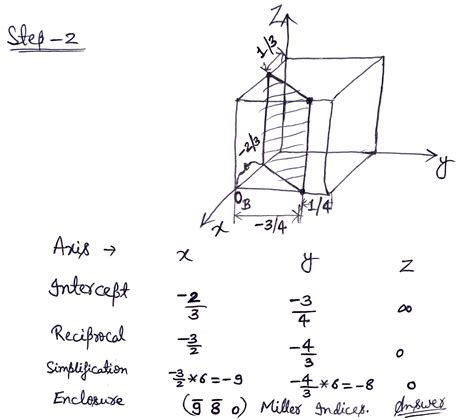 Step-2
Z
1/3
-2/3
y
O_B
1/4
x
-3/4
Axis → x y z
Intercept -2/3 -3/4 ∞
Reciprocal -3/2 -4/3 0
Simplification -3/2 * 6 = -9 -4/3 * 6 = -8 0
Enclosure (9̅ 8̅ 0) Miller Indices. Answer